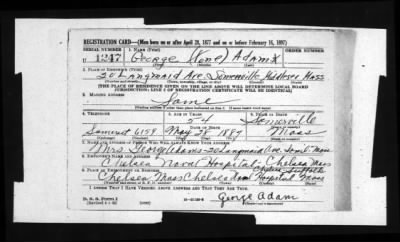 REGISTRATION CARD—(Men born on or after April 28, 1877 and on or before February 16, 1897)
SERIAL NUMBER 1. NAME (Print) ORDER NUMBER
1247 George (none) Adam
2. PLACE OF RESIDENCE (Print)
20 Langmaid Ave Somerville Middlesex Mass
[THE PLACE OF RESIDENCE GIVEN ON THE LINE ABOVE WILL DETERMINE LOCAL BOARD
JURISDICTION; LINE 2 OF REGISTRATION CERTIFICATE WILL BE IDENTICAL]
3. MAILING ADDRESS
Same
4. TELEPHONE 5. AGE IN YEARS 6. PLACE OF BIRTH
54 Somerville
DATE OF BIRTH
Somerset 6158 May 28 1887 Mass
7. NAME AND ADDRESS OF PERSON WHO WILL ALWAYS KNOW YOUR ADDRESS
Mrs George Adams-20 Langmaid Ave Som'l-Mass
8. EMPLOYER'S NAME AND ADDRESS
Chelsea Naval Hospital-Chelsea Mass
9. PLACE OF EMPLOYMENT OR BUSINESS
Chelsea Mass Chelsea Naval Hospital Mass
I AFFIRM THAT I HAVE VERIFIED ABOVE ANSWERS AND THAT THEY ARE TRUE.
D. S. S. Form 1
George Adam